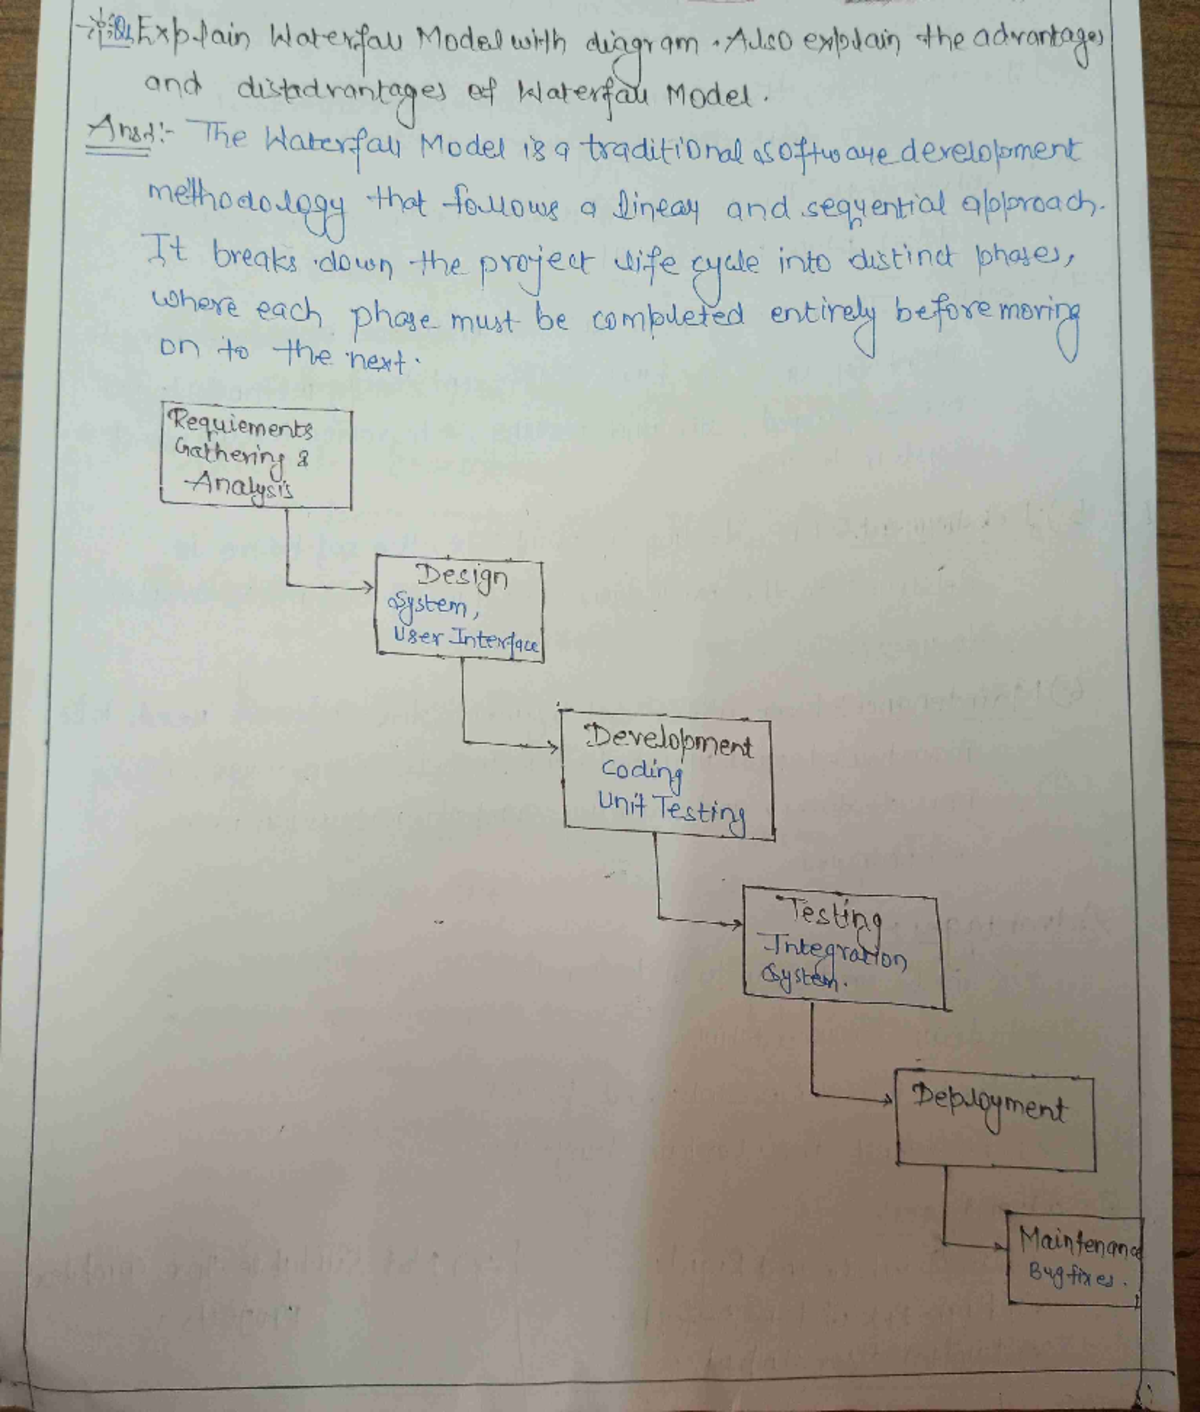 Explain Waterfall Model with diagram. Also explain the advantages
and disadvantages of Waterfall Model.
Ans:- The Waterfall Model is a traditional software development
methodology that follows a linear and sequential approach.
It breaks down the project life cycle into distinct phases,
where each phase must be completed entirely before moving
on to the next.
Requiements
Gathering &
Analysis
Design
System,
User Interface
Development
Coding
Unit Testing
Testing
Integration
System.
Deployment
Maintenance
Bug fixes.